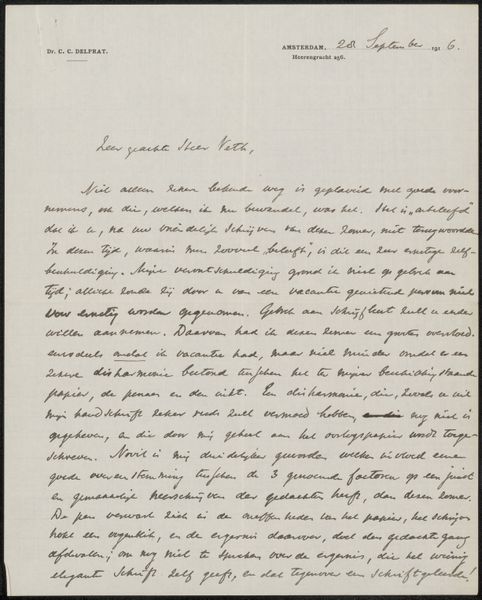 Dr. C. C. DELPRAT.
AMSTERDAM, 28 September 1916.
Heerengracht 256.
Zeer geachte Heer Veth,
Niet alleen zekere bekende weg is geplaveid met goede voor-
nemens, ook die, welken ik nu bewandel, was het. Het is „onbeleefd"
dat ik u, na uw vriendelijk schrijven van dezen zomer, niet
In dezen tijd, waarin men zooveel „beleeft", is dit een zeer ernstige zelf-
beschuldiging. Mijne verontschuldiging grond ik niet op gebrek aan
tijd; allicht zoude zij door u van een vacantie
ernstig worden opgenomen. Gebrek aan schrijflust zult u eerder
willen aannemen. Daarvan had ik dezen zomer een groten overvloed.
eensdeels omdat ik vacantie had, maar niet minder omdat er een
zekere disharmonie bestond tusschen het te mijner beschikking staande
papier, de pennen en den inkt. Een disharmonie, die, zooals u uit
mijn handschrift zeker reeds zult vermoed hebben, nog niet is
opgeheven, en die door mij geheel aan het oorlogspapier wordt toege-
schreven. Nooit is mij duidelijker geworden welken invloed eene
goede overeenstemming tusschen de 3 genoemde factoren op een juist
en gemakkelijk neerschrijven der gedachten heeft, dan dezen zomer.
De pen verwart zich in de oneffenheden van het papier, het schrijven
hokt een oogenblik, en de ergernis daarover, doet den gedachtegang
afdwalen; om nog niet te spreken over de ergernis, die het weinig
elegante schrift zelf geeft, en dat tegenover een schriftgeleerde!